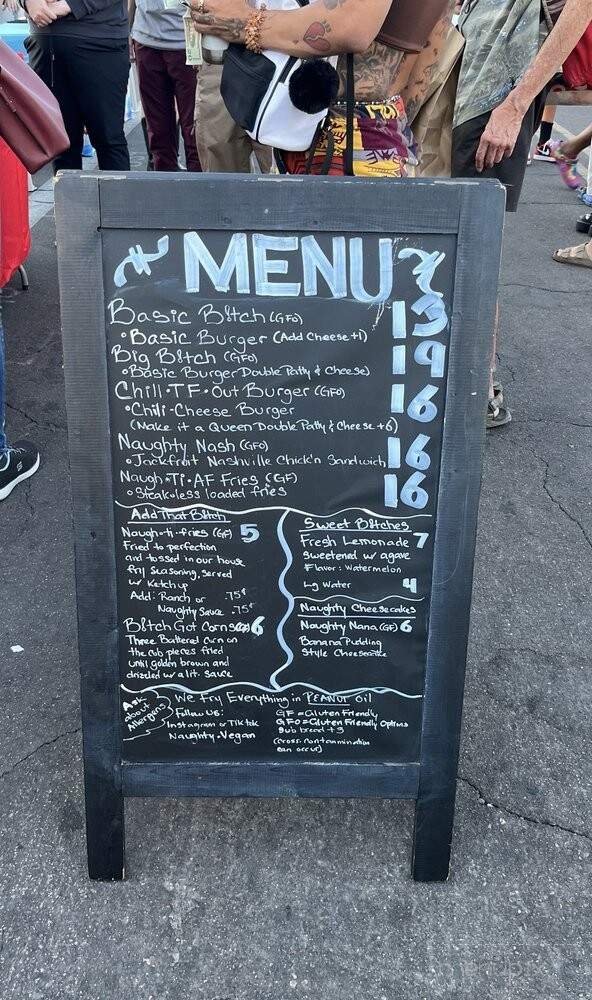 MENU
Basic B!tch (GFO) 13
• Basic Burger (Add Cheese +1)
Big B!tch (GFO) 19
• Basic Burger Double Patty & Cheese)
Chili•T•F•Out Burger (GFO) 16
• Chili-Cheese Burger
(Make it a Queen Double Patty & Cheese +6)
Naughty Nash (GFO) 16
• Jackfruit Nashville Chick'n Sandwich
Naugh•Ti•AF Fries (GF) 16
• Steak-less loaded fries
Add That B!tch
Naugh-ti-fries (GF) 5
Fried to perfection
and tossed in our house
fry seasoning, served
w/ Ketchup
Add: Ranch or .75¢
Naughty Sauce .75¢
B!tch Got Corn 6
Three Battered corn on
the cob pieces fried
until golden brown and
drizzled w/ a lit. sauce
Sweet B!tches
Fresh Lemonade 7
sweetened w/ agave
Flavor: Watermelon
Lg Water 4
Naughty Cheesecakes
Naughty Nana (GF) 6
Banana Pudding
Style Cheesecake
Ask about Allergens
We Fry Everything in PEANUT oil
Follow us:
Instagram or Tik tok
Naughty.Vegan
GF = Gluten Friendly
GFO = Gluten Friendly Options
Sub bread +3
(cross-contamination
can occur)